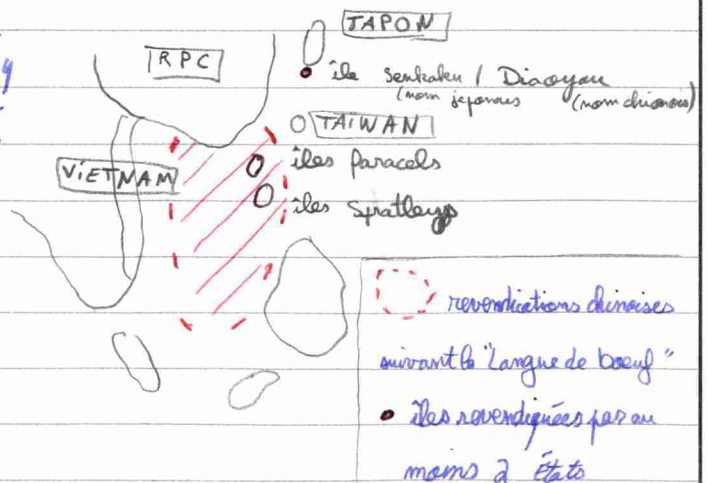 TAPON
RPC
île Senkaku / Diaoyau
(nom japonais (nom chinois)
TAIWAN
îles Paracels
VIETNAM
îles Spratleys
revendications chinoises
suivant la "langue de boeuf"
îles revendiquées par au
moins 2 États